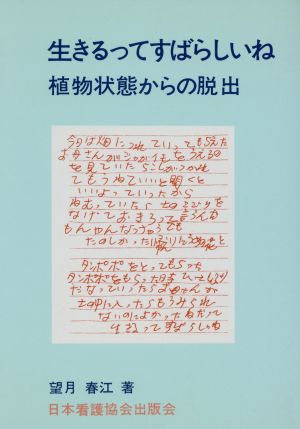 生きるってすばらしいね
植物状態からの脱出
今日は畑につれていってもらえた
お母さんがジャガイモをうえるの
を見ていたらこしがつかれ
てもうねていいと聞くと
いいよっていったから
ねむっていたら
なげておきろって言うんだ
もんやんなっちゃうでも
たのしかった
タンポポをとってもらった
タンポポをもらった時ひさしぶり
だなっていったらお母さんが
中に入ったらもうみられ
ないのによかったねだって
生きるってすばらしいね
望月 春江 著
日本看護協会出版会